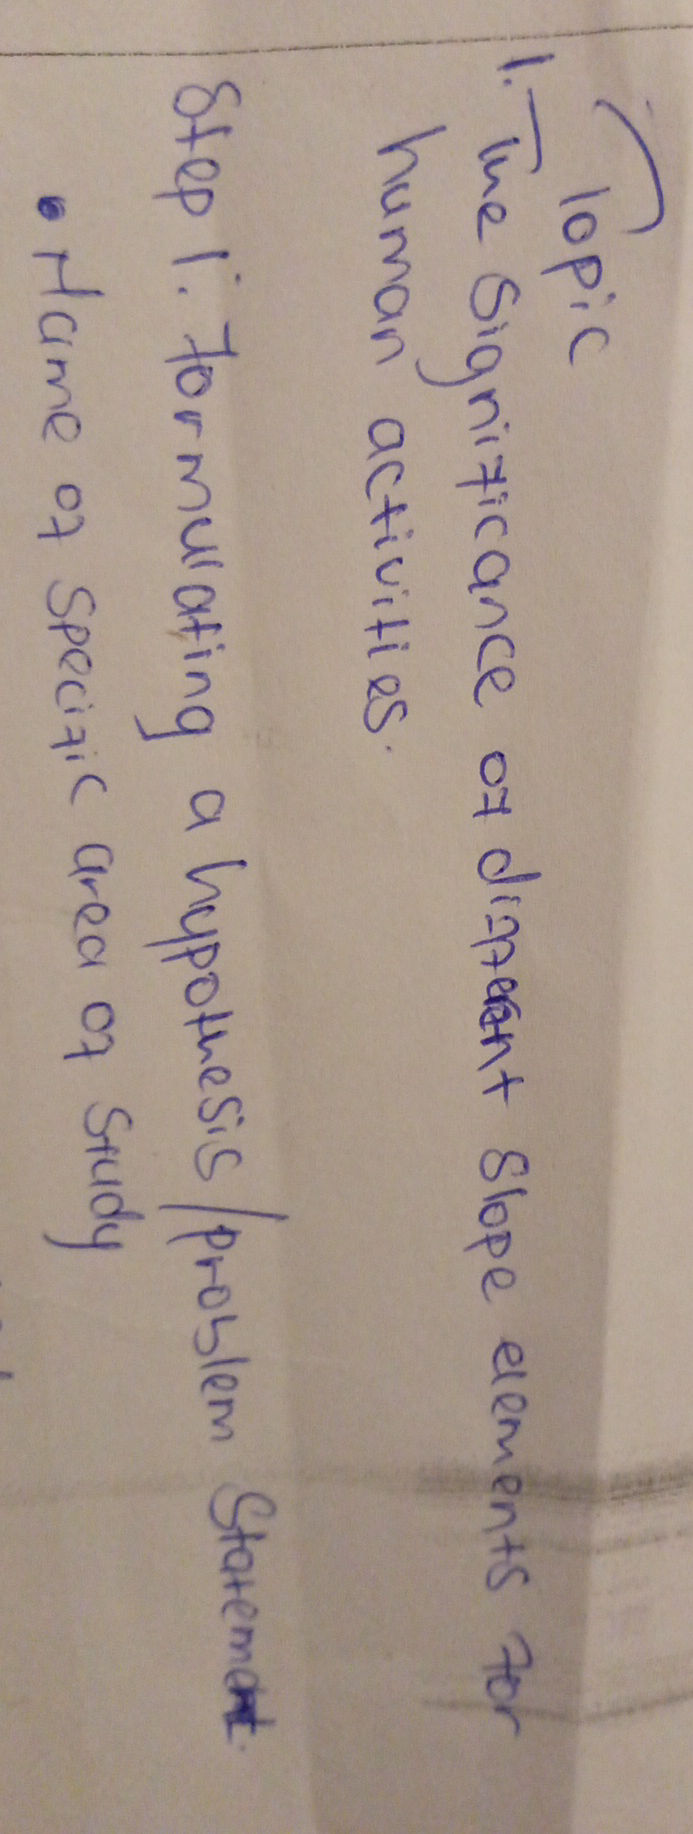 Topic
1. The Significance of different Slope elements for
human activities.
Step 1: Formulating a hypothesis/problem Statement.
• Name of Specific area of Study